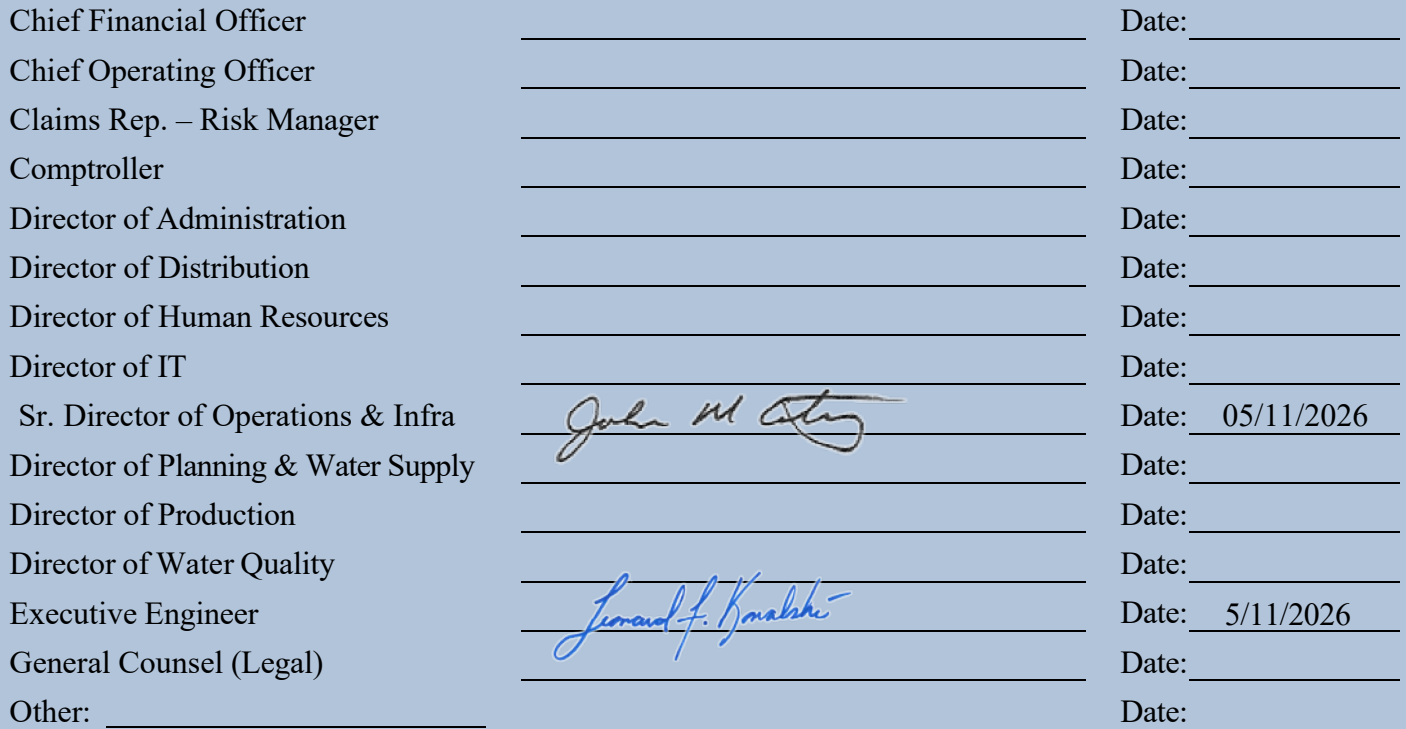 Chief Financial Officer Date:
Chief Operating Officer Date:
Claims Rep. – Risk Manager Date:
Comptroller Date:
Director of Administration Date:
Director of Distribution Date:
Director of Human Resources Date:
Director of IT Date:
Sr. Director of Operations & Infra John M Date: 05/11/2026
Director of Planning & Water Supply Date:
Director of Production Date:
Director of Water Quality Date:
Executive Engineer Leonard F. Kowalski Date: 5/11/2026
General Counsel (Legal) Date:
Other: Date: